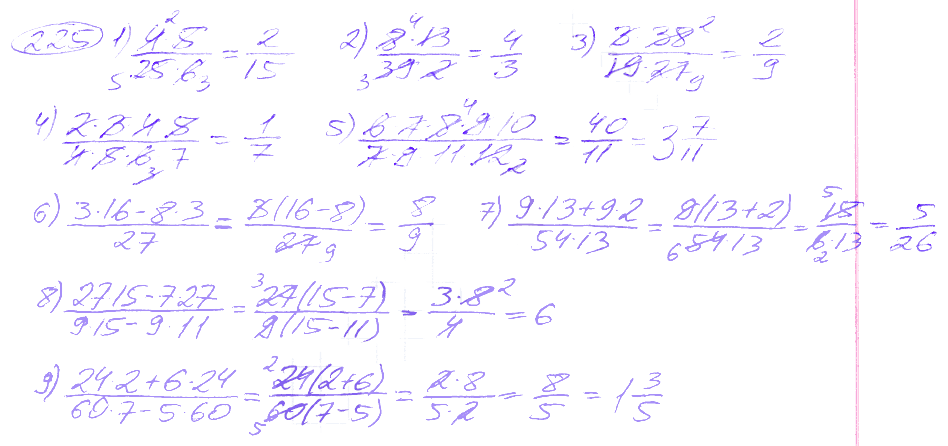 225 1) 4² 5 / 5 25 · 6 3 = 2/15 2) 8 4 · 13 / 3 39 · 2 = 4/3 3) 3 · 38 2 / 19 · 27 9 = 2/9
4) 2·3·4·5 / 4·5·6 3 7 = 1/7 5) 6·7·8 4·9·10 / 7·9·11·12 2 = 40/11 = 3 7/11
6) 3·16-8·3 / 27 = 3(16-8) / 27 9 = 8/9 7) 9·13+9·2 / 54·13 = 9(13+2) / 6 54·13 = 5 15 / 6 2 ·13 = 5/26
8) 27 15-7 27 / 9 15-9·11 = 3 27(15-7) / 9(15-11) = 3·8 2 / 4 = 6
9) 24 2+6·24 / 60·7-5·60 = 2 24(2+6) / 5 60(7-5) = 2·8 / 5·2 = 8/5 = 1 3/5